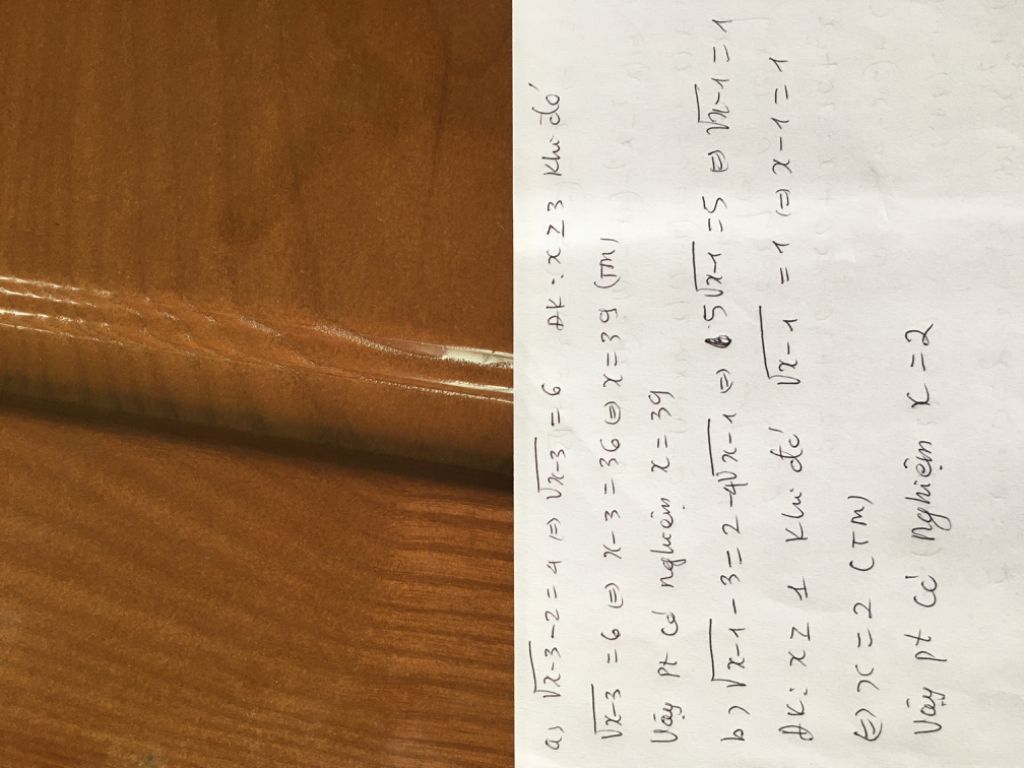 a) √x-3 - 2 = 4 (=) √x-3 = 6 ĐK: x ≥ 3 Khi đó
√x-3 = 6 (=) x - 3 = 36 (=) x = 39 (TM)
Vậy pt có nghiệm x = 39
b) √x-1 - 3 = 2 - 4√x-1 (=) 5√x-1 = 5 (=) √x-1 = 1
ĐK: x ≥ 1 Khi đó √x-1 = 1 (=) x - 1 = 1
(=) x = 2 (TM)
Vậy pt có nghiệm x = 2